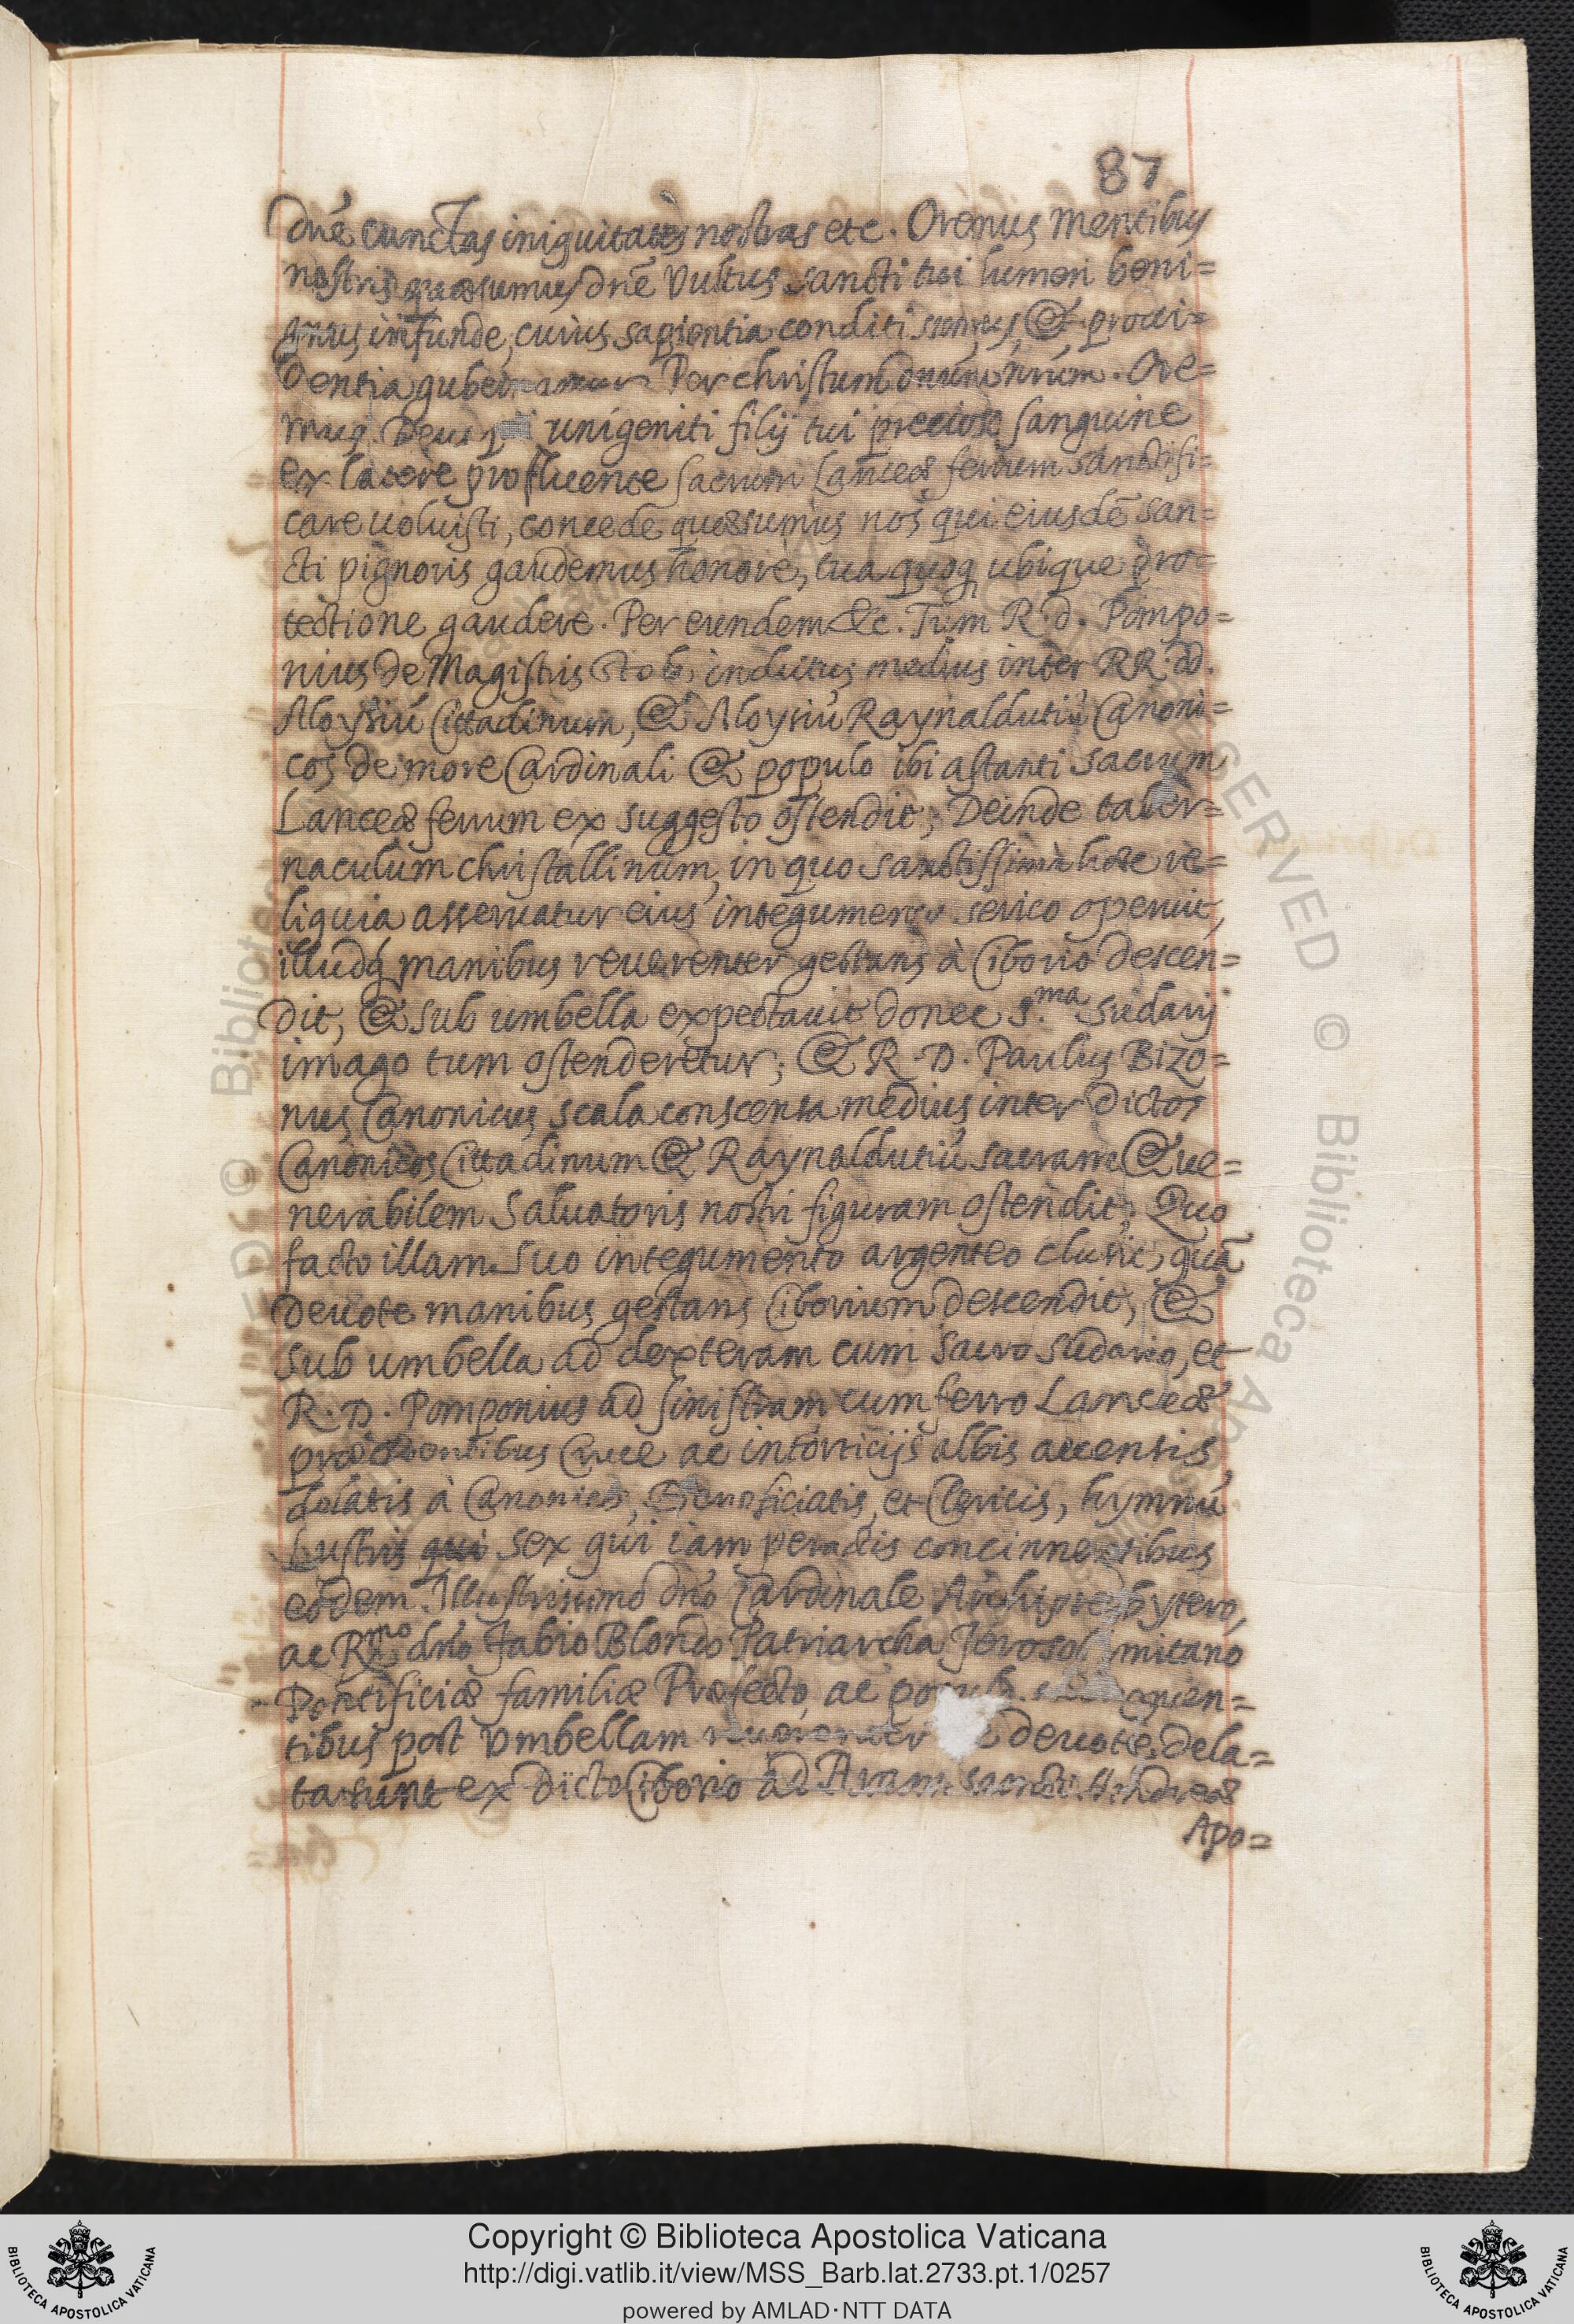 87
Dnē cunctas iniquitates nostras etc. Oremus Mentibus
nostris quæsumus dnē Vultus sancti tui lumen beni=
gnus infunde, cuius sapientia conditi sumus, & proui=
dentia gubernamur Per christum dnūm nrūm. Ore=
mus. Deus qui unigeniti filij tui precioso sanguine
ex latere profluente sacrum Lanceæ ferrum sanctifi=
care uoluisti, concede quæsumus nos qui eiusdē san=
cti pignoris gaudemus honore, tua quoq ubique pro=
tectione gaudere. Per eundem &c. Tum R. d. Pompo=
nius de Magistris Stola indutus medius inter RR. dd.
Aloysiū Cittadinum, & Aloysiū Raynaldutiū Canoni=
cos de more Cardinali & populo ibi astanti sacrum
Lanceæ ferrum ex suggesto ostendit; Deinde taber=
naculum christallinum, in quo sanctissima hæc re=
liquia asseruatur eius integumento serico operuit,
illudq manibus reuerenter gestans à Ciborio descen=
dit, & sub umbella expectauit donec S.ma Sudarij
imago tum ostenderetur; & R. D. Paulus Bizo=
nus Canonicus scala conscensa medius inter dictos
Canonicos Cittadinum & Raynaldutiū sacram & ue=
nerabilem Saluatoris nostri figuram ostendit; Quo
facto illam suo integumento argenteo clusit, quā
deuote manibus gestans Ciborium descendit, &
sub umbella ad dexteram cum sacro sudario, et
R. D. Pomponius ad sinistram cum ferro Lanceæ
præcedentibus Cruce ac intorticijs albis accensis,
delatis à Canonicis, Beneficiatis, et Clericis, hymnū
Lustris qui sex qui iam peractis concinnentibus
eodem Illustrissimo dnō Cardinale Archipresbytero,
ac R.mo dnō Fabio Blondo Patriarcha Jerosolymitano
Pontificiæ familiæ Præfecto, ac populo
tibus post Vmbellam reuerenter deuote, dela=
ta sunt ex dicto Ciborio ad Aram sancti Andreæ
Apo=
Copyright © Biblioteca Apostolica Vaticana
http://digi.vatlib.it/view/MSS_Barb.lat.2733.pt.1/0257
powered by AMLAD·NTT DATA
BIBLIOTECA APOSTOLICA VATICANA
BIBLIOTECA APOSTOLICA VATICANA